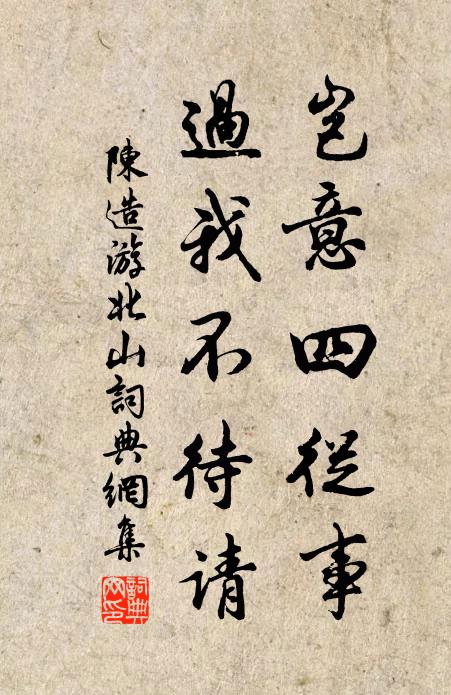 豈意四從事
過我不待请
陳造游北山詞典網集
詞典网印